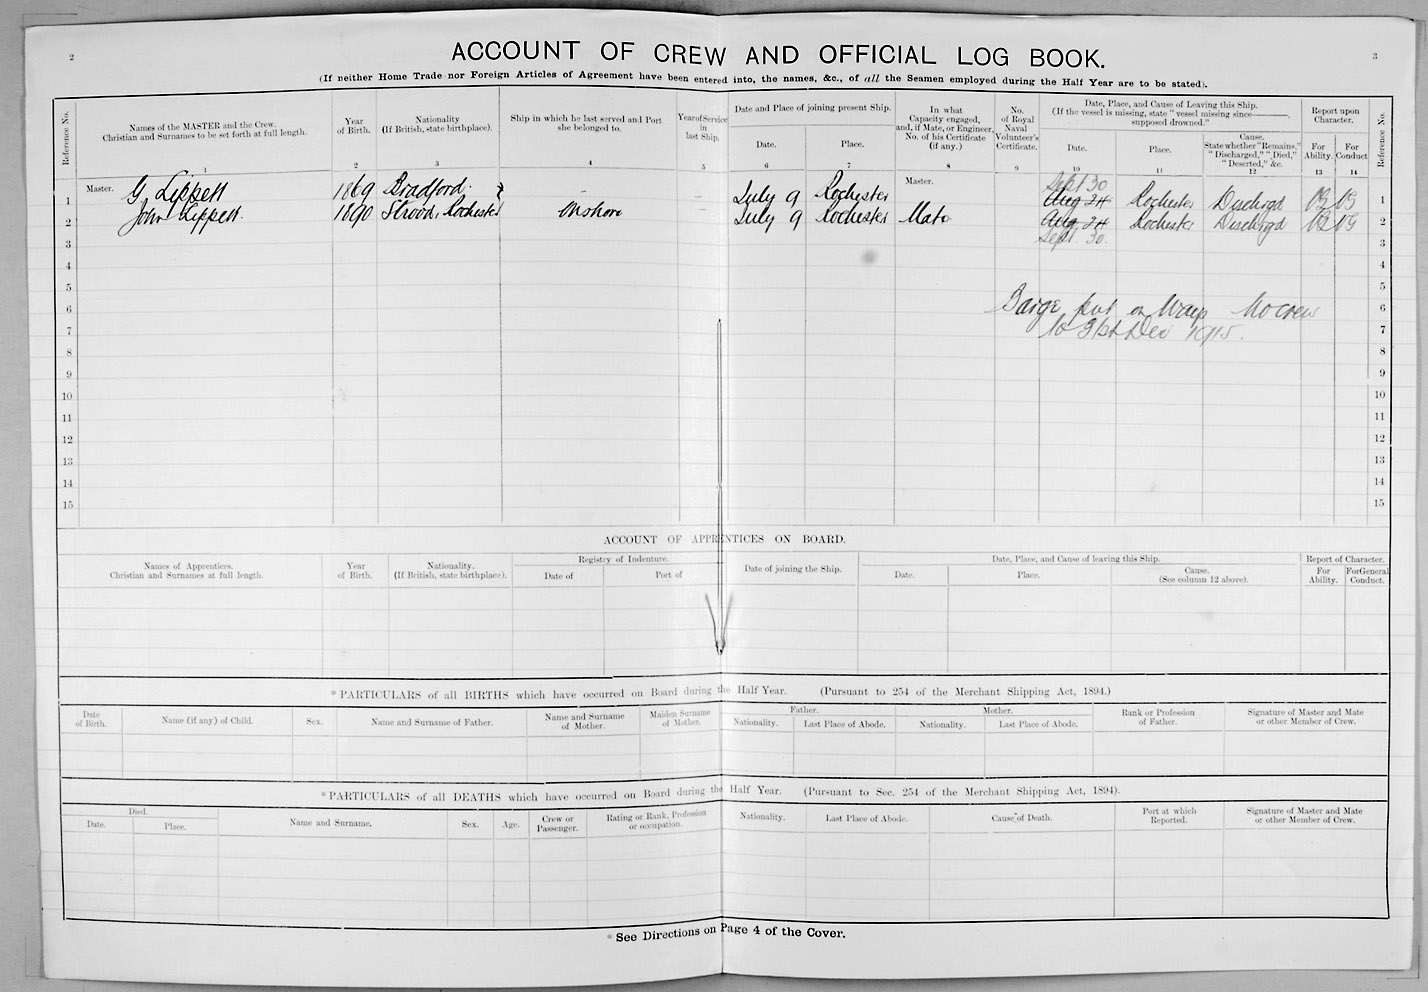 2
3
ACCOUNT OF CREW AND OFFICIAL LOG BOOK.
(If neither Home Trade nor Foreign Articles of Agreement have been entered into, the names, &c., of all the Seamen employed during the Half Year are to be stated).
Reference No.
Names of the MASTER and the Crew.
Christian and Surnames to be set forth at full length.
Year
of Birth.
Nationality
(If British, state birthplace).
Ship in which he last served and Port
she belonged to.
Year of Service
in
last Ship.
Date and Place of joining present Ship.
Date.
Place.
In what
Capacity engaged,
and, if Mate, or Engineer,
No. of his Certificate
(if any.)
No.
of Royal
Naval
Volunteer's
Certificate.
Date, Place, and Cause of Leaving this Ship.
(If the vessel is missing, state "vessel missing since———,
supposed drowned."
Date.
Place.
Cause.
State whether "Remains,"
"Discharged," "Died,"
"Deserted," &c.
Report upon
Character.
For
Ability.
For
Conduct
Reference No.
1 2 3 4 5 6 7 8 9 10 11 12 13 14
Sept 30
1 Master. G Lippett 1869 Bradford - July 9 Rochester Master. Aug 24 Rochester Dischrgd VG VG 1
2 John Lippett. 1890 Strood, Rochester onshore July 9 Rochester Mate Aug 24 Rochester Dischrgd VG VG 2
3 Sept. 30. 3
4 4
5 5
6 Barge put on Ways No crew 6
7 to 31st Dec 1915. 7
8 8
9 9
10 10
11 11
12 12
13 13
14 14
15 15
ACCOUNT OF APPRENTICES ON BOARD.
Names of Apprentices.
Christian and Surnames at full length.
Year
of Birth.
Nationality.
(If British, state birthplace).
Registry of Indenture.
Date of
Port of
Date of joining the Ship.
Date, Place, and Cause of leaving this Ship.
Date.
Place.
Cause.
(See column 12 above).
Report of Character.
For
Ability.
For General
Conduct.
*PARTICULARS of all BIRTHS which have occurred on Board during the Half Year. (Pursuant to 254 of the Merchant Shipping Act, 1894.)
Date
of Birth.
Name (if any) of Child.
Sex.
Name and Surname of Father.
Name and Surname
of Mother.
Maiden Surname
of Mother.
Father.
Nationality.
Last Place of Abode.
Mother.
Nationality.
Last Place of Abode.
Rank or Profession
of Father.
Signature of Master and Mate
or other Member of Crew.
*PARTICULARS of all DEATHS which have occurred on Board during the Half Year. (Pursuant to Sec. 254 of the Merchant Shipping Act, 1894).
Died.
Date.
Place.
Name and Surname.
Sex.
Age.
Crew or
Passenger.
Rating or Rank, Profession
or occupation.
Nationality.
Last Place of Abode.
Cause of Death.
Port at which
Reported.
Signature of Master and Mate
or other Member of Crew.
* See Directions on Page 4 of the Cover.